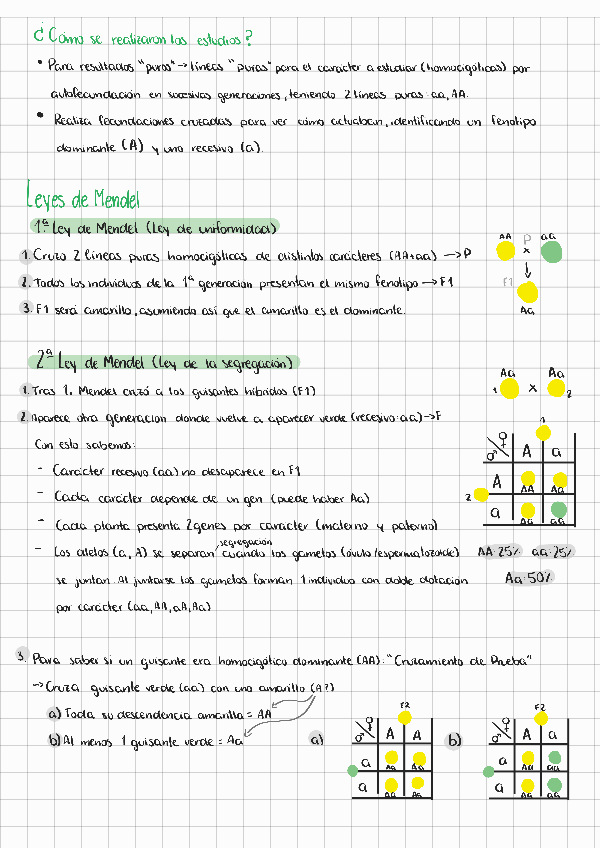 ¿Cómo se realizaron los estudios?
• Para resultados "puros" → líneas "puras" para el carácter a estudiar (homocigóticas) por
autofecundación en sucesivas generaciones, teniendo 2 líneas puras: aa, AA.
• Realiza fecundaciones cruzadas para ver cómo actuaban, identificando un fenotipo
dominante (A) y uno recesivo (a).
Leyes de Mendel
1ª Ley de Mendel (Ley de uniformidad)
1. Cruzo 2 líneas puras homocigóticas de distintos carácteres (AA+aa) → P
2. Todos los individuos de la 1ª generación presentan el mismo fenotipo → F1
3. F1 será amarillo, asumiendo así que el amarillo es el dominante.
AA P aa
x
F1
Aa
2ª Ley de Mendel (Ley de la segregación)
1. Tras 1, Mendel cruzó a los guisantes híbridos (F1)
2. Aparece otra generación donde vuelve a aparecer verde (recesivo:aa) → F
Con esto sabemos:
- Carácter recesivo (aa) no desaparece en F1
- Cada carácter depende de un gen (puede haber Aa)
- Cada planta presenta 2 genes por carácter (materno y paterno)
segregación
- Los alelos (a, A) se separan cuando los gametos (óvulo/espermatozoide)
se juntan. Al juntarse los gametos forman 1 individuo con doble dotación
por carácter (aa, AA, aA, Aa)
Aa Aa
1 x 2
1
♀ ♂ A a
A AA Aa
2
a Aa aa
AA:25% aa:25%
Aa:50%
3. Para saber si un guisante era homocigótico dominante (AA): "Cruzamiento de Prueba"
→ Cruza guisante verde (aa) con uno amarillo (A?)
a) Toda su descendencia amarilla = AA
b) Al menos 1 guisante verde = Aa
a)
F2
♀ ♂ A A
a Aa Aa
a Aa Aa
b)
F2
♀ ♂ A a
a Aa aa
a Aa aa